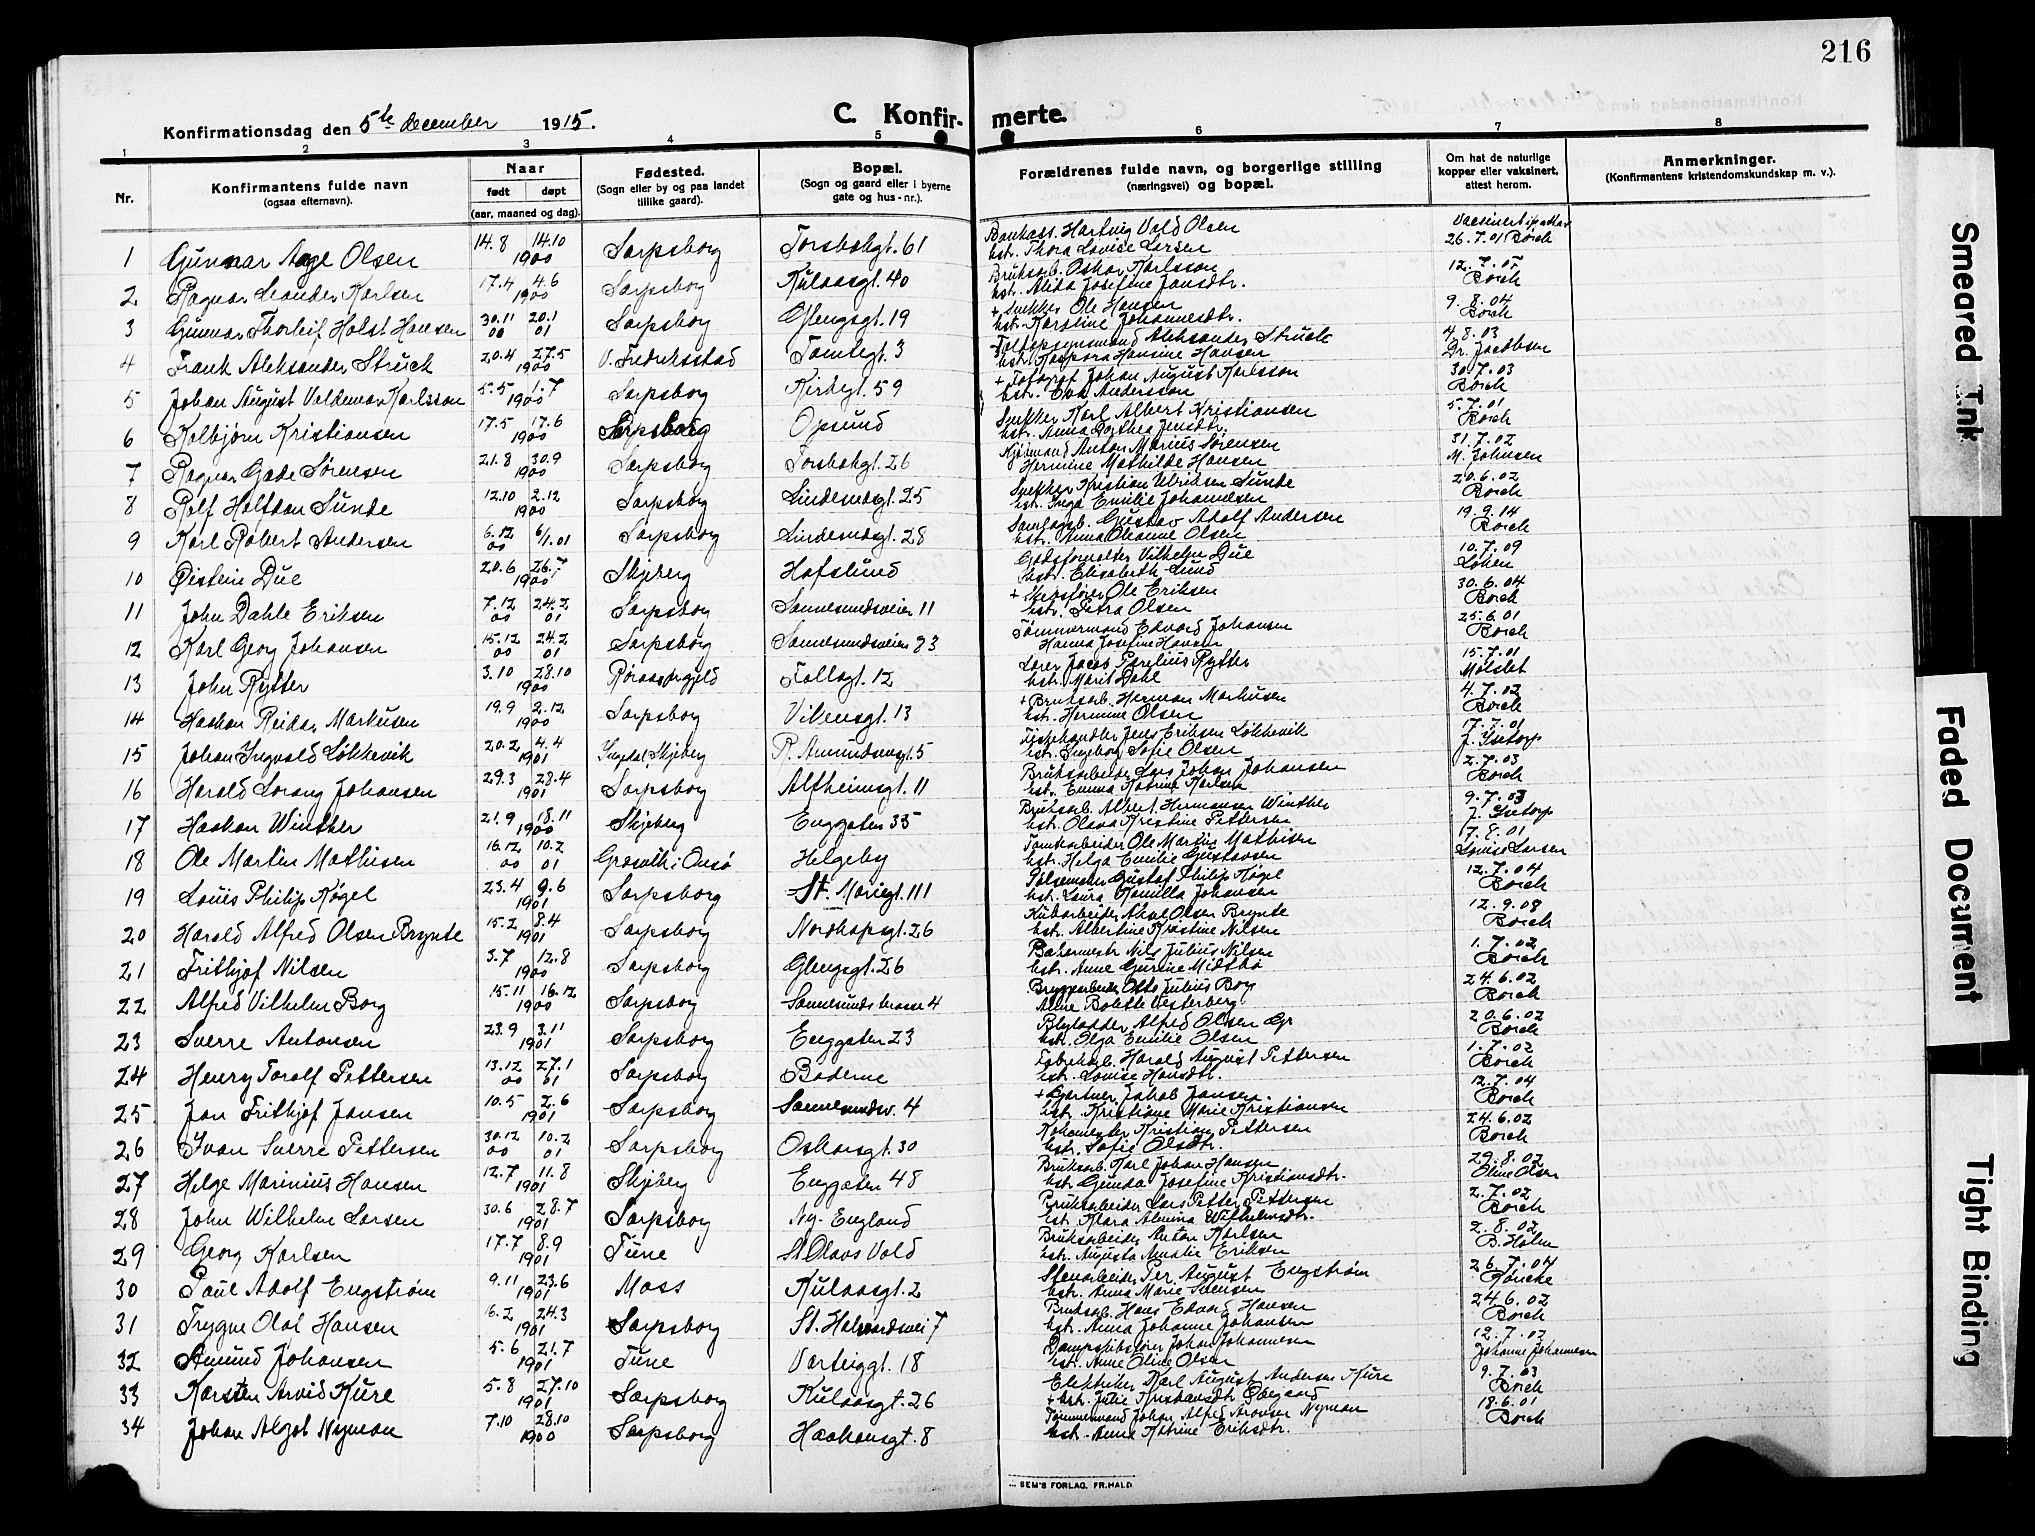 216
Konfirmationsdag den 5te december 1915.
C. Konfirmerte.
1 2 3 4 5 6 7 8
Nr.
Konfirmantens fulde navn
(ogsaa efternavn).
Naar
født døpt
(aar, maaned og dag).
Fødested.
(Sogn eller by og paa landet
tillike gaard).
Bopæl.
(Sogn og gaard eller i byerne
gate og hus-nr.).
Forældrenes fulde navn, og borgerlige stilling
(næringsvei) og bopæl.
Om hat de naturlige
kopper eller vaksinert,
attest herom.
Anmerkninger.
(Konfirmantens kristendomskundskap m. v.).
1 Gunnar Aage Olsen 14.8 14.10 1900 Sarpsborg Torsbekgt. 61 Hartvig Vold Olsen Vaccinert 26.7.01 Borch
hstr. Thora Lovise Larsen
2 Ragnar Leander Karlsen 17.4 4.6 1900 Sarpsborg Kulaasgt. 40 Bruksarb. Oskar Karlsson 12.7.07 Borch
hstr. Alida Josefine Jansdtr.
3 Gunnar Thorleif Holst Hansen 30.11 00 20.1 01 Sarpsborg Glengsgt. 19 + Snekker Ole Hansen 9.8.04 Borch
hstr. Karoline Johannesdtr.
4 Frank Aleksander Struck 20.4 27.5 1900 V. Fredriksstad Tomtegt. 3 Toldopsynsmand Aleksander Struck 4.8.03 Dr. Jacobsen
hstr. Kaspara Hansine Hansen
5 Johan August Valdemar Karlsson 5.5 1.7 1900 Sarpsborg Kirkegt. 59 + Fotograf Johan August Karlsson 30.7.03 Borch
hstr. Eva Andersson
6 Kolbjørn Kristiansen 17.5 17.6 1900 Sarpsborg Opsund Snekker Karl Albert Kristiansen 5.7.01 Borch
hstr. Anna Dorthea Jensdtr.
7 Ragnar Gade Sørensen 21.8 30.9 1900 Sarpsborg Torsbekgt. 26 Kjøbmand Anton Marius Sørensen 31.7.02 M. Johnsen
Hermine Mathilde Hansen
8 Rolf Halfdan Sunde 12.10 2.12 1900 Sarpsborg Lindemdsgt. 25 Snekker Kristian Ulriksen Sunde 20.6.02 Borch
hstr. Inga Emilie Johannesen
9 Karl Robert Andersen 6.12 00 6/1.01 Sarpsborg Lindemdsgt. 28 Samlagsb. Gustav Adolf Andersen 19.9.14 Borch
hstr. Anna Oleanne Olsen
10 Øistein Due 20.6 26.7 1900 Skjeberg Hafslund Godsforvalter Vilhelm Due 10.7.09 Løken
hstr. Elisabeth Lund
11 John Dahle Eriksen 7.12 00 24.2 01 Sarpsborg Sannesundsveien 11 + Ole Eriksen 30.6.04 Borch
hstr. Petra Olsen
12 Karl Georg Johansen 15.12 00 24.2 01 Sarpsborg Sannesundsveien 83 Tømmermand Edvard Johansen 25.6.01 Borch
Hanna Josefine Hansen
13 John Rytter 3.10 28.10 1900 Røraas prgjeld Tollagt. 12 Lærer Jacob Parelius Rytter 15.7.01 Molstet
hstr. Marit Dahl
14 Haakon Reidar Markusen 19.9 2.12 1900 Sarpsborg Vikensgt. 13 + Bruksarb. Herman Markusen 4.7.02 Borch
hstr. Hermine Olsen
15 Johan Ingvald Løkkevik 20.2 4.4 1901 Ingedal Skjeberg R. Amundsensgt. 5 Fiskehandler Jens Eriksen Løkkevik 17.7.01 J. Isetorp
hstr. Ingeborg Sofie Olsen
16 Harald Lorang Johansen 29.3 28.4 1901 Sarpsborg Alfheimsgt. 11 Bruksarbeider Lars Johan Johansen 2.7.03 Borch
hstr. Emma Katrine Karlsen
17 Haakon Winther 21.9 18.11 1900 Skjeberg Enggaten 35 Bruksarb. Albert Hermansen Winther 9.7.03 J. Isetorp
hstr. Olava Kristine Pettersen
18 Ole Martin Mathisen 16.12 00 10.2 01 Græsvik i Onsø Helgeby Tomtearbeider Ole Martin Mathisen 17.8.01 Lovise Larsen
hstr. Helga Emilie Gustavsen
19 Louis Philip Køgel 23.4 9.6 1901 Sarpsborg St. Mariegt. 111 Pølsemaker Gustaf Philip Køgel 12.7.04 Borch
hstr. Laura Kamilla Johansen
20 Harald Alfred Olsen Brynte 15.2 8.4 1901 Sarpsborg Nordkapsgt. 26 Olsen Brynte 12.9.08 Borch
hstr. Albertine Kristine Nilsen
21 Frithjof Nilsen 3.7 12.8 1900 Sarpsborg Glengsgt. 26 Bakermestr. Nils Julius Nilsen 1.7.02 Borch
hstr. Anne Gurine Midtbø
22 Alfred Vilhelm Borg 15.11 16.12 1900 Sarpsborg Sannesunds brosse 4 Bryggearbeider Otto Julius Borg 24.6.02 Borch
Aline Bolette Vesterberg
23 Sverre Antonsen 23.9 3.11 1901 Sarpsborg Enggaten 23 Alfred Olsen Gr 20.6.02 Borch
hstr. Olga Emilie Olsen
24 Henry Toralf Pettersen 13.12 00 27.1 01 Sarpsborg Baderne Fabrikarb. Harald August Pettersen 1.7.02 Borch
hstr. Lovise Hansdtr.
25 Jan Frithjof Jansen 10.5 2.6 1901 Sarpsborg Sannesundsv. 4 + Gartner Jakob Jansen. 12.7.04 Borch
hstr. Kristiane Marie Kristiansen
26 Ivan Sverre Pettersen 30.12 00 10.2 01 Sarpsborg Oskarsgt. 30 Kristian Pettersen 24.6.02 Borch
hstr. Sofie Olsdtr.
27 Helge Marinius Hansen 12.7 11.8 1901 Skjeberg Enggaten 48 Bruksarb. Karl Johan Hansen 29.8.02 Oline Olsen
hstr. Gunda Josefine Kristiansdtr.
28 John Wilhelm Larsen 30.6 28.7 1901 Sarpsborg Ny-England Bruksarbeider Lars Petter Pettersen 2.7.02 Borch
hstr. Klara Alvina Wilhelmsdtr.
29 Georg Karlsen 17.7 8.9 1901 Tune St. Olavs Vold Bruksarbeider Anton Karlsen 2.8.02 B. Holm
hstr. Augusta Amalie Eriksen
30 Paul Adolf Engstrøm 9.11 23.6 1901 Moss Kulaasgt. 2 Stenarbeider Per August Engstrøm 26.7.04
hstr. Anna Marie Svensen
31 Trygve Olaf Hansen 16.2 24.3 1901 Sarpsborg St. Halvardsvei 7 Bruksarb. Hans Edvard Hansen 24.6.02 Borch
hstr. Anna Johanne Johansen
32 Amund Johansen 5.6 21.7 1901 Tune Varteiggt. 18 Dampskibsfører Johan Johannesen 12.7.02 Johanne Johannesen
hstr. Anne Oline Olsen
33 Karsten Arvid Kure 5.8 27.10 1901 Sarpsborg Kulaasgt. 26 Elektriker Karl August Andersen Kure 9.7.03 Borch
+ hstr. Julie Kristiansdtr. Ødegaard
34 Johan Algot Nyman 7.10 28.10 1900 Sarpsborg Haakonsgt. 8 Tømmermand Johan Alfred Aronsen Nyman 18.6.01 Borch
hstr. Anna Katrine Eriksdtr.
SEM'S FORLAG, FR.HALD
Smeared Ink
Faded Document
Tight Binding